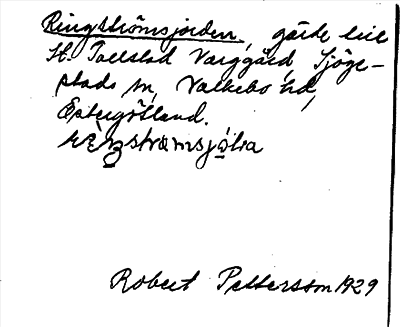 Ringströmsjorden, gärde till
St. Tollstad Varggård, Sjöge-
stads sn, Valkebo hd,
Östergötland.
Robert Pettersson 1929